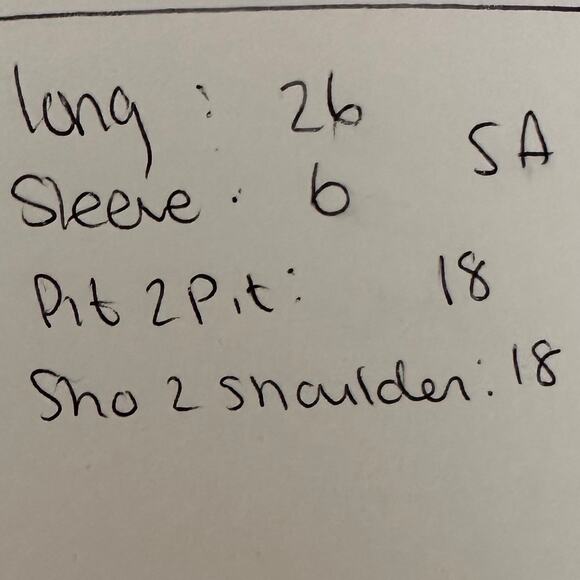 long : 26
SA
Sleeve . 6
Pit 2 Pit : 18
Sho 2 Shoulder : 18